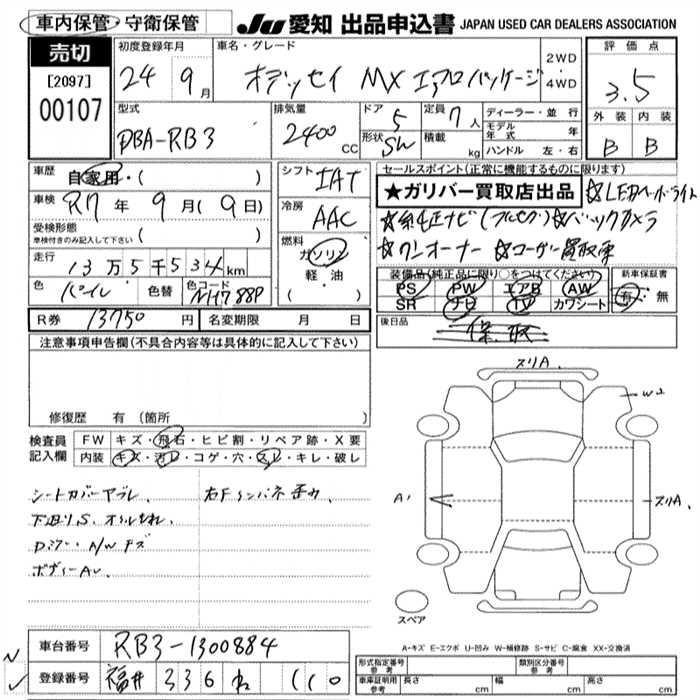 車内保管・守衛保管
JU 愛知 出品申込書 JAPAN USED CAR DEALERS ASSOCIATION
売切
[2097]
00107
初度登録年月
24年 9月
車名・グレード
オデッセイ MX エアロパッケージ
2WD
・
4WD
評価点
3.5
外装 内装
B B
型式
DBA-RB3
排気量
2400CC
ドア 5
形状 SW
定員 7人
積載 kg
ディーラー・並行
モデル年式 年
ハンドル 左・右
車歴
自家用・( )
車検
R7年 9月(9日)
受検形態
車検付きのみ記入して下さい ( )
走行
13万5千534km
色 パール 色替 色コード NH788P
シフト IAT
冷房 AAC
燃料
ガソリン
軽油
( )
セールスポイント(正常に機能するものに限ります)
★ガリバー買取店出品 ☆LEDヘッドライト
☆純正ナビ(フルセグ)☆バックカメラ
☆ワンオーナー ☆ユーザー買取車
装備品(純正品に限り○をつけてください)
PS PW エアB AW
SR ナビ TV カワシート
新車保証書
有・無
R券 13750円 名変期限 月 日
後日品
保、取
注意事項申告欄(不具合内容等は具体的に記入して下さい)
修復歴 有(箇所 )
検査員記入欄
FW キズ・飛石・ヒビ割・リペア跡・X要
内装 キズ・汚レ・コゲ・穴・スレ・キレ・破レ
シートカバーヤブレ、
下廻りS、オイルもれ、
Dミラー・A/Wキズ
スリA.
W2
A1
スリA.
スペア
A-キズ E-エクボ U-凹み W-補修跡 S-サビ C-腐食 XX-交換済
車台番号 RB3-1300884
登録番号 福井 336 110
形式指定番号 参考
類別区分番号 参考
車庫証明用 参考 長さ cm 幅 cm 高さ cm